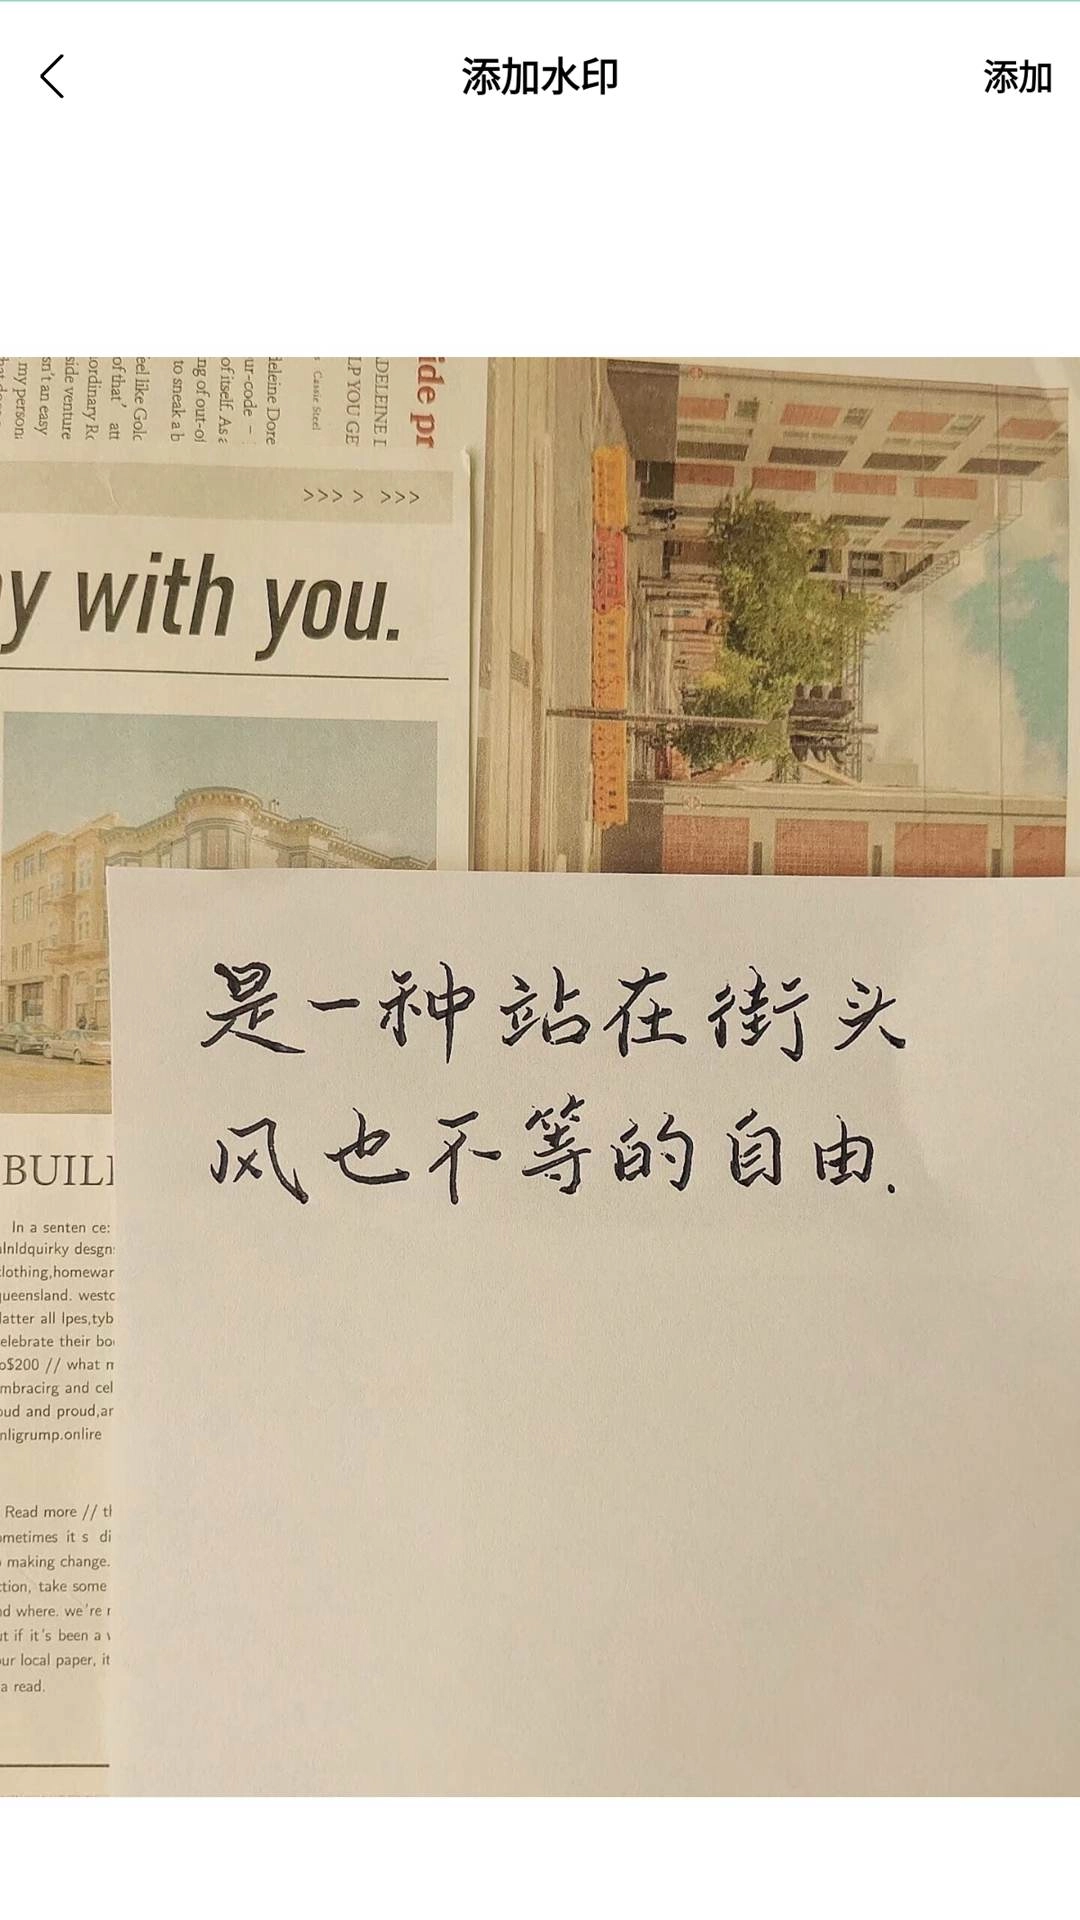 添加水印
添加
ide pr
DELEINE
LP YOU GE
Cassie Steel
deleine Dore
ur-code –
ng of out-of
to sneak a b
eel like Gold
of that' att
ordinary
side venture
sn't an easy
my person
>>> > >>>
y with you.
是一种站在街头
风也不等的自由.
BUIL
In a senten ce:
lnldquirky desgn
lothing,homewar
ueensland. westc
latter all lpes,tyb
elebrate their bo
o$200 // what m
mbracirg and cel
oud and proud,ar
nligrump.onlire
Read more // th
ometimes it s di
making change.
ction, take some
nd where. we're
ut if it's been a
our local paper, it
a read.